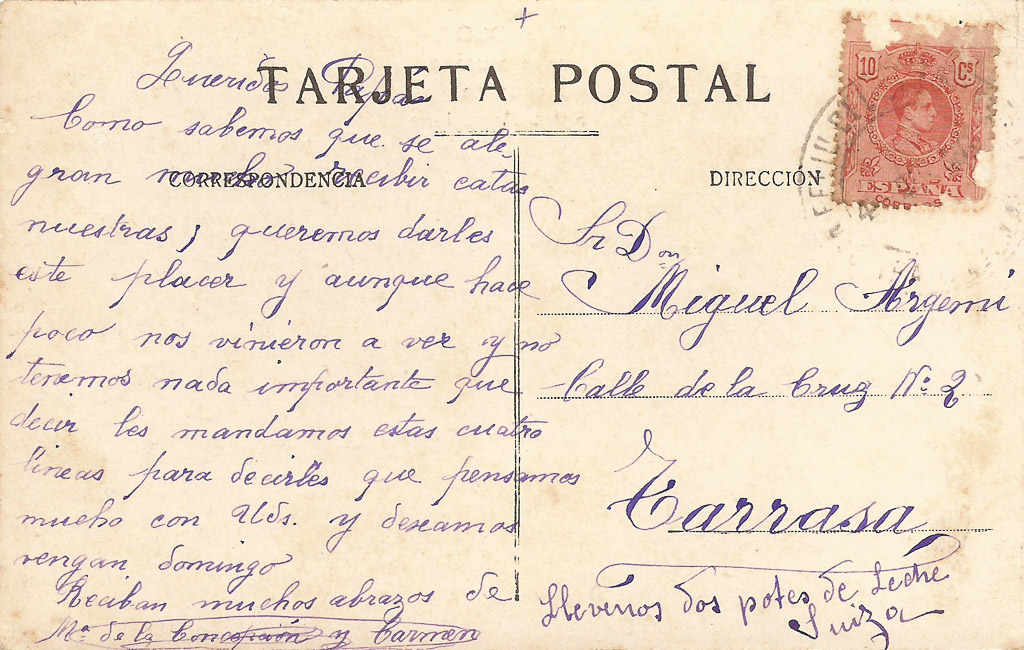 TARJETA POSTAL
CORRESPONDENCIA
Queridos Papás
Como sabemos que se ale-
gran mucho recibir catas
nuestras, queremos darles
este placer y aunque hace
poco nos vinieron a ver y no
tenemos nada importante que
decir les mandamos estas cuatro
lineas para decirles que pensamos
mucho con Uds. y deseamos
vengan domingo
Reciban muchos abrazos de
Mª de la Concepción y Carmen
DIRECCIÓN
10 Cs.
ESPAÑA
CORREOS
Sr Don
Miguel Argemí
Calle de la Cruz Nº 2
Tarrasa
Llevenos dos potes de Leche
Suiza